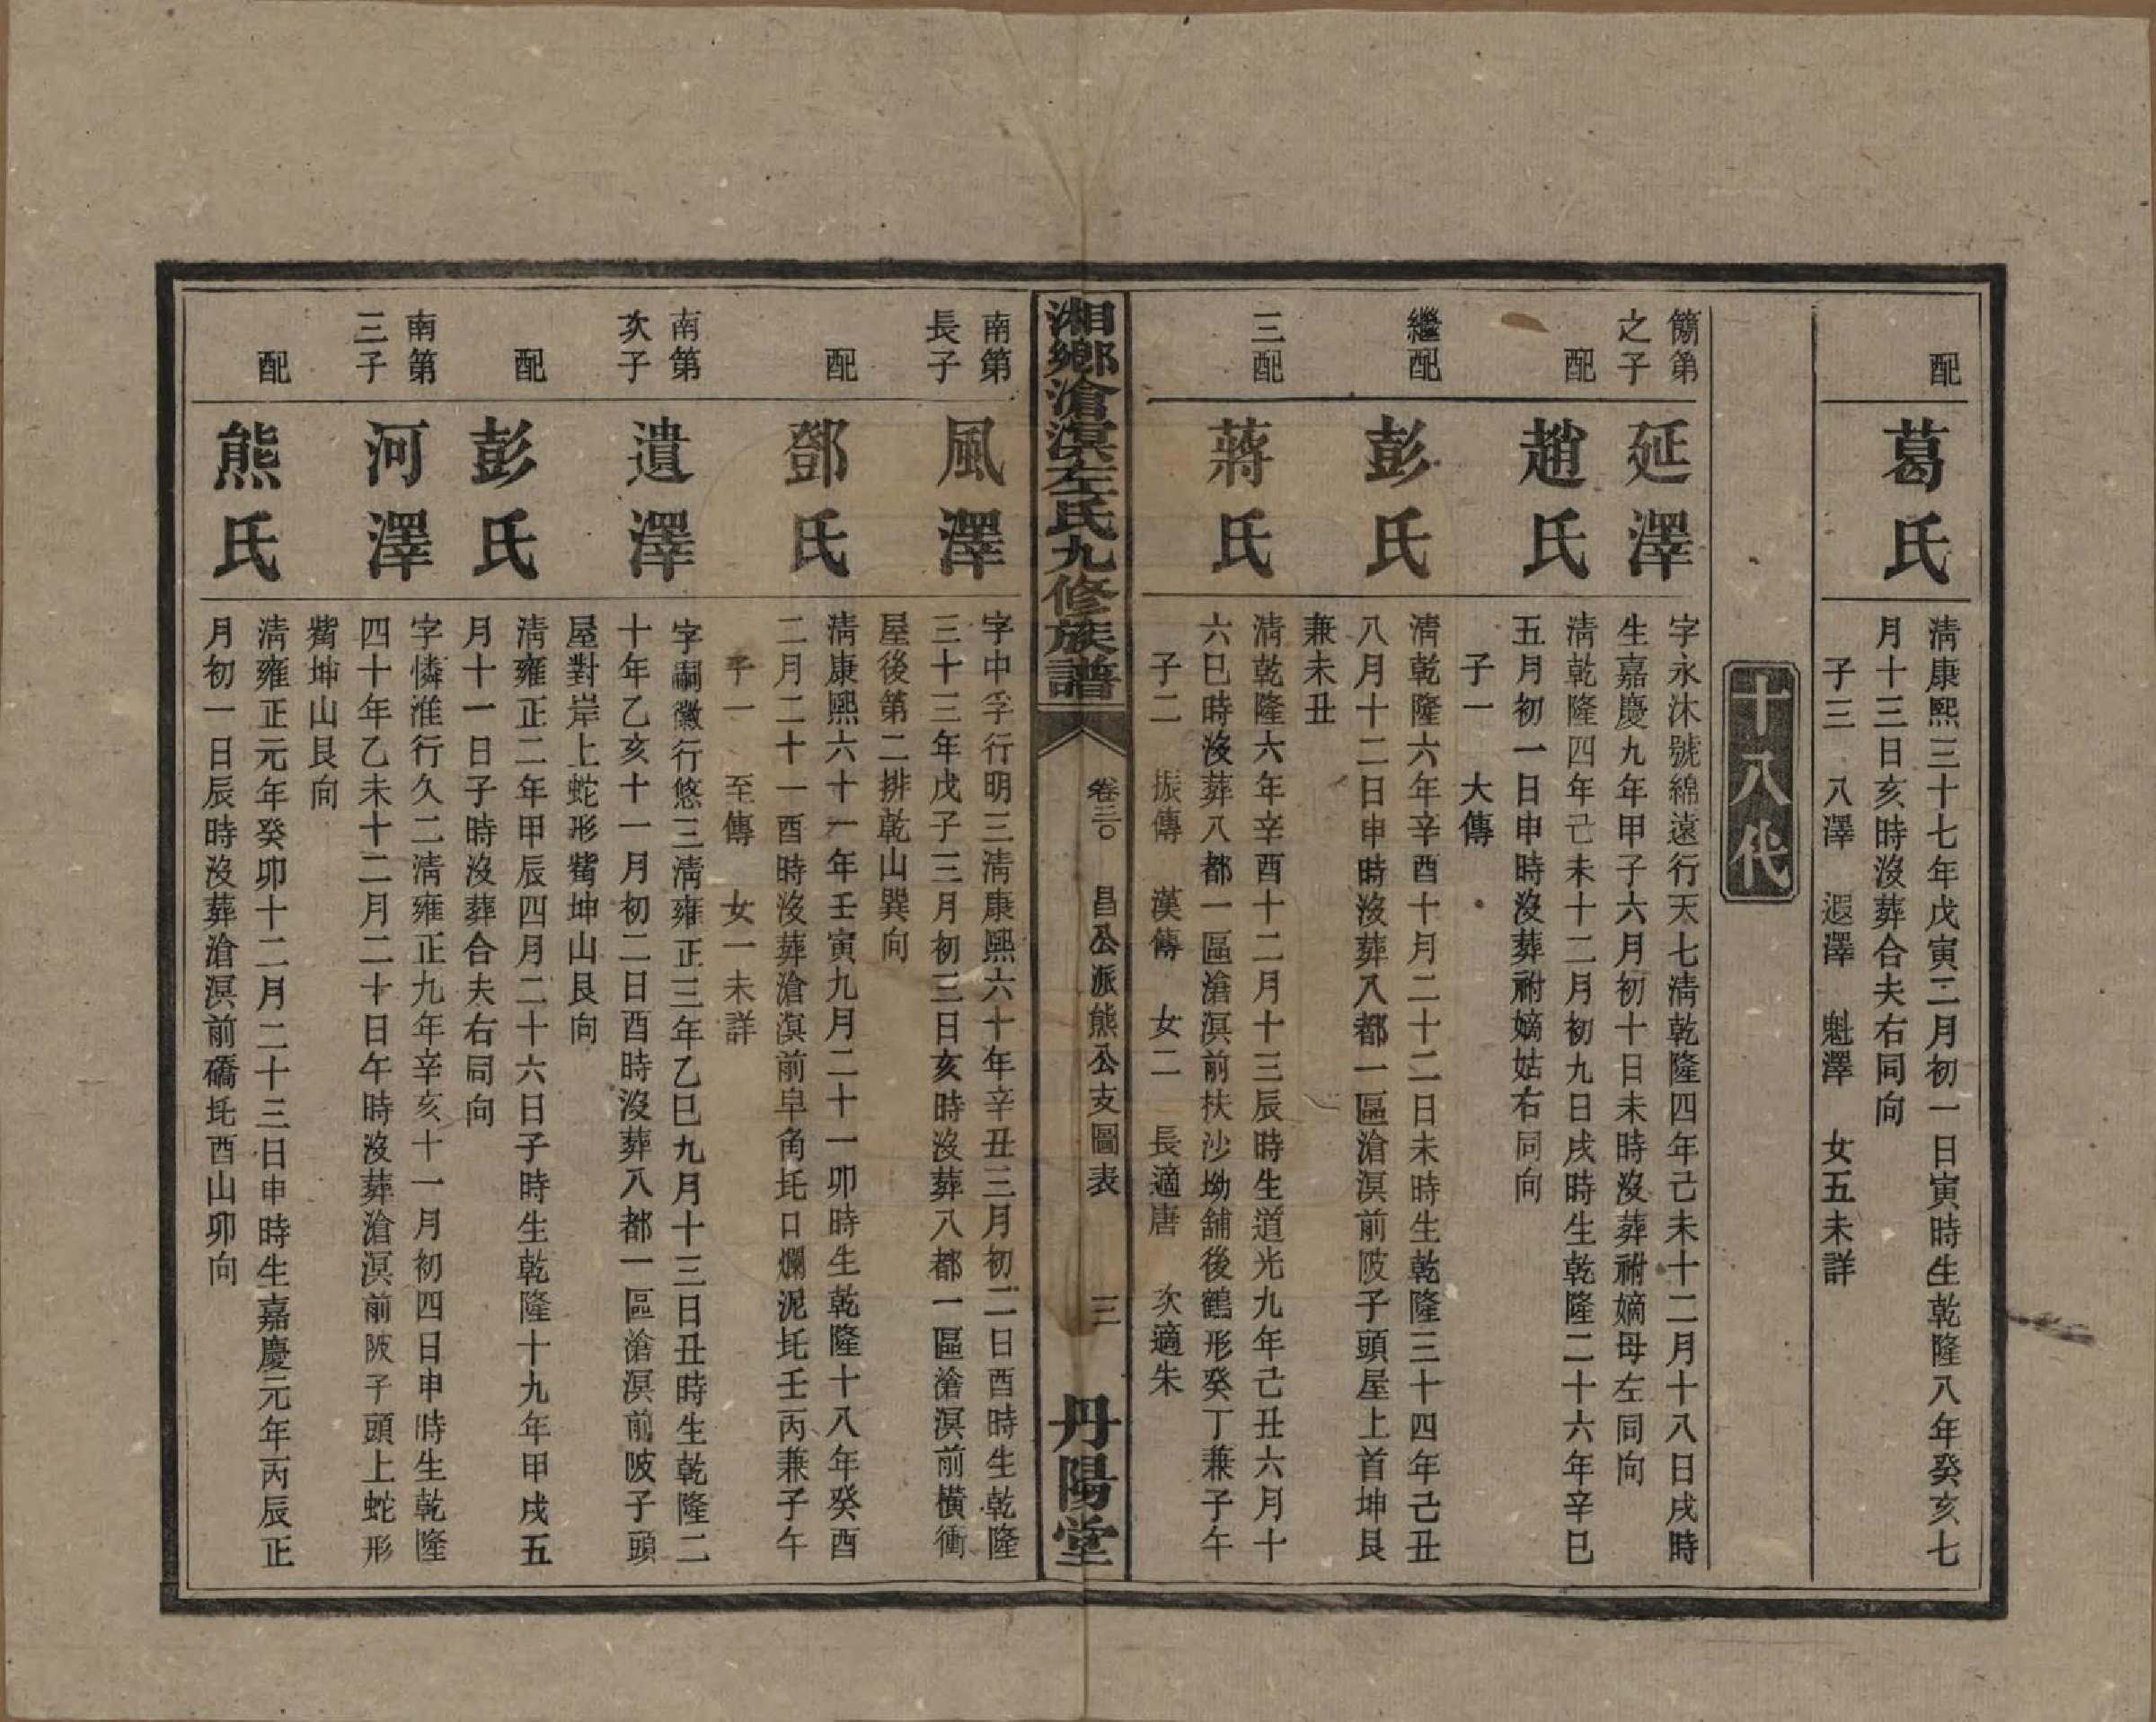 配
葛氏
淸康熙三十七年戊寅二月初一日寅時生乾隆八年癸亥七
月十三日亥時沒葬合夫右同向
子三　八澤　遐澤　魁澤　女五未詳
十八代
簡第
之子
延澤
字永沐號綿遠行天七淸乾隆四年己未十二月十八日戌時
生嘉慶九年甲子六月初十日未時沒葬祔嫡母左同向
配
趙氏
淸乾隆四年己未十二月初九日戌時生乾隆二十六年辛巳
五月初一日申時沒葬祔嫡姑右同向
子一　大傳
繼配
彭氏
淸乾隆六年辛酉十月二十二日未時生乾隆三十四年己丑
八月十二日申時沒葬八都一區滄溟前陂子頭屋上首坤艮
兼未丑
三配
蔣氏
淸乾隆六年辛酉十二月十三辰時生道光九年己丑六月十
六巳時沒葬八都一區滄溟前扶沙坳舖後鶴形癸丁兼子午
子二　振傳　漢傳　女二　長適唐　次適朱
湘鄉滄溟左氏九修族譜
卷三〇　昌公派熊公支圖表　三
丹陽堂
南第
長子
風澤
字中孚行明三淸康熙六十年辛丑三月初二日酉時生乾隆
三十三年戊子三月初三日亥時沒葬八都一區滄溟前橫衝
屋後第二排乾山巽向
配
鄧氏
淸康熙六十一年壬寅九月二十一卯時生乾隆十八年癸酉
二月二十一酉時沒葬滄溟前皁角圫口爛泥圫壬丙兼子午
子一　至傳　女一未詳
南第
次子
遺澤
字嗣徽行悠三淸雍正三年乙巳九月十三日丑時生乾隆二
十年乙亥十一月初二日酉時沒葬八都一區滄溟前陂子頭
屋對岸上蛇形觜坤山艮向
配
彭氏
淸雍正二年甲辰四月二十六日子時生乾隆十九年甲戌五
月十一日子時沒葬合夫右同向
南第
三子
河澤
字憐淮行久二淸雍正九年辛亥十一月初四日申時生乾隆
四十年乙未十二月二十日午時沒葬滄溟前陂子頭上蛇形
觜坤山艮向
配
熊氏
淸雍正元年癸卯十二月二十三日申時生嘉慶元年丙辰正
月初一日辰時沒葬滄溟前礄圫酉山卯向